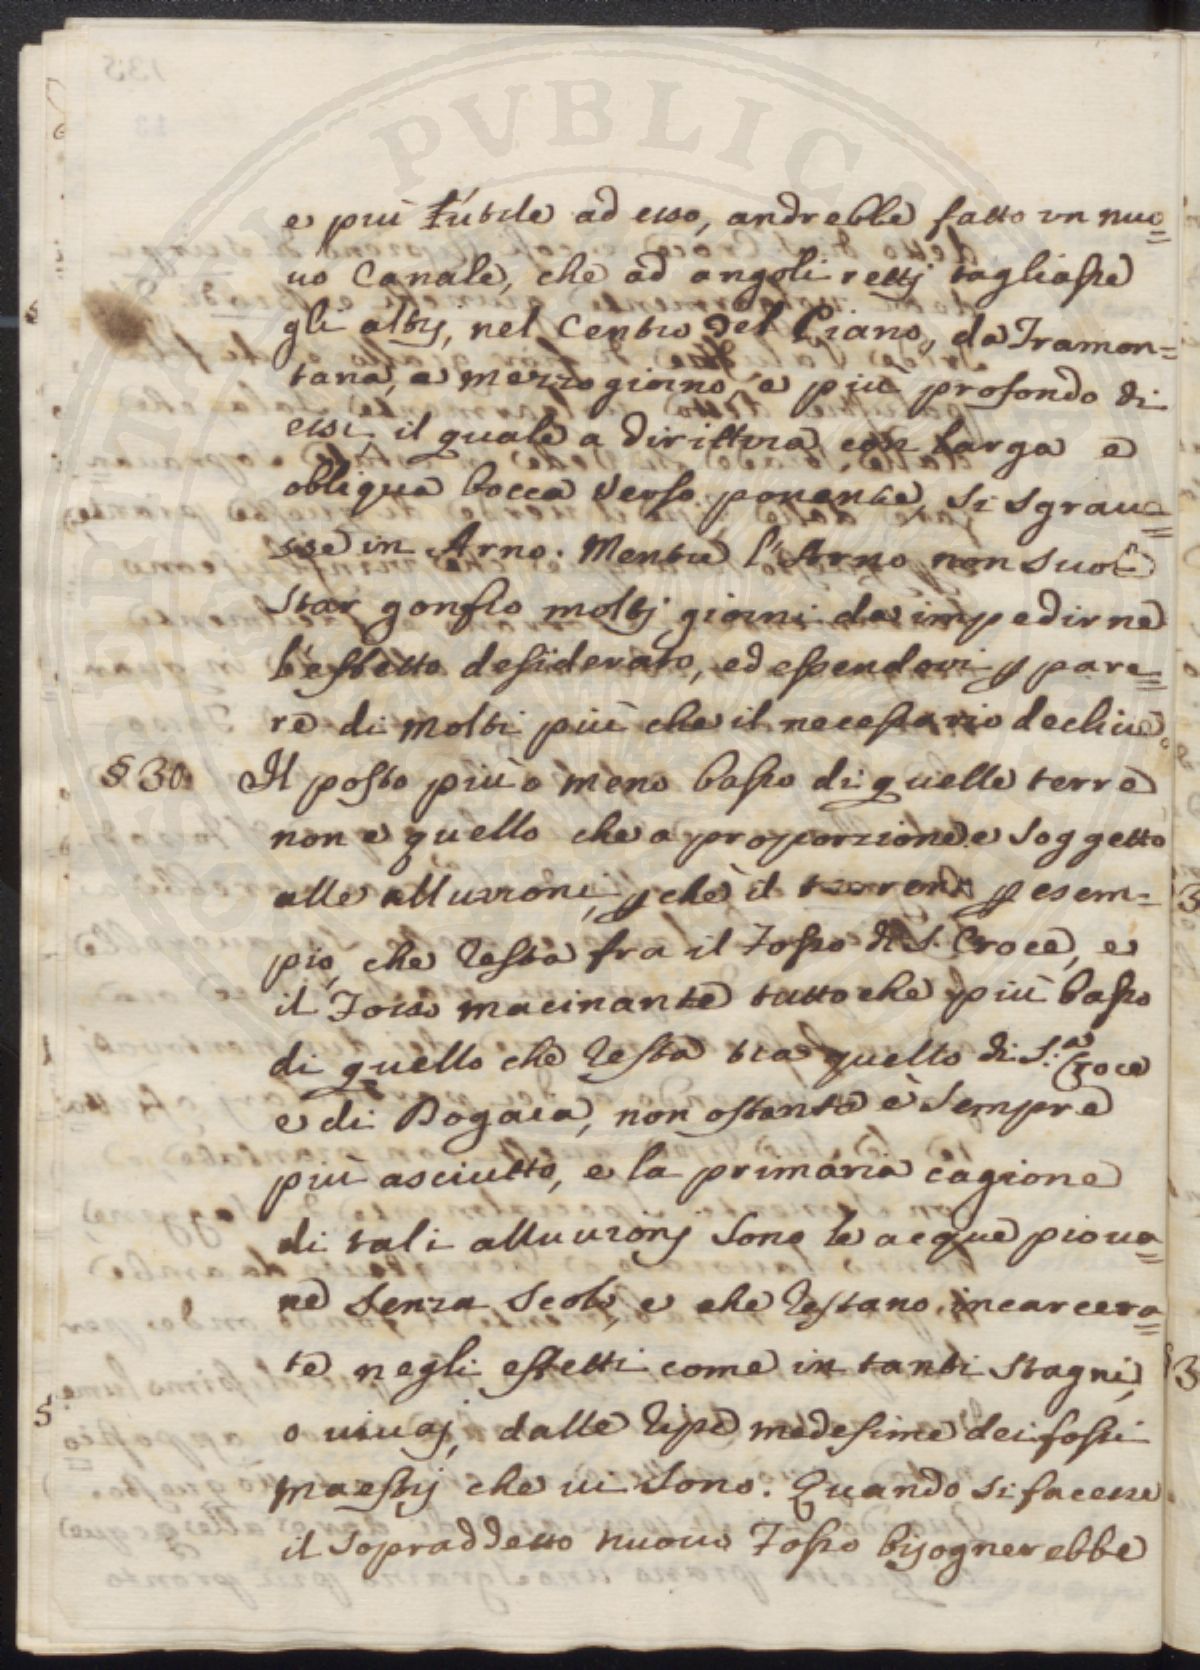 e più l'utile ad esso, andrebbe fatto vn nuo=
uo Canale, che ad angoli rettj tagliasse
gli altrj, nel Centro del Piano, da Tramon=
tana, a mezzo giorno, e più profondo di
essi il quale a dirittura con larga e
obliqua bocca verso ponente, si sgraua=
sse in Arno. Mentre l'Arno non suole
star gonfio moltj giorni da impedirne
l'effetto desiderato, ed essendovi p pare=
re di molti più che il necessario decliue.
§ 30. Il posto più o meno basso di quelle terre
non e quello che a proporzione e soggetto
alle alluuioni, p chè il terreno p esem=
pio, che resta fra il Fosso di S. Croce, e
il Fosso macinante tutto che più basso
di quello che resta tra quello di S.a Croce
e di Bogaia, non ostante è sempre
più asciutto, e la primaria cagione
di tali alluuionj sono le acque pioua=
ne senza scolo, e che restano incarcera=
te negli effetti come in tanti stagni,
o uiuaj, dalle ripe medesime dei fossi
maestrj che ui sono. Quando si facesse
il sopraddetto nuouo Fosso bisognerebbe